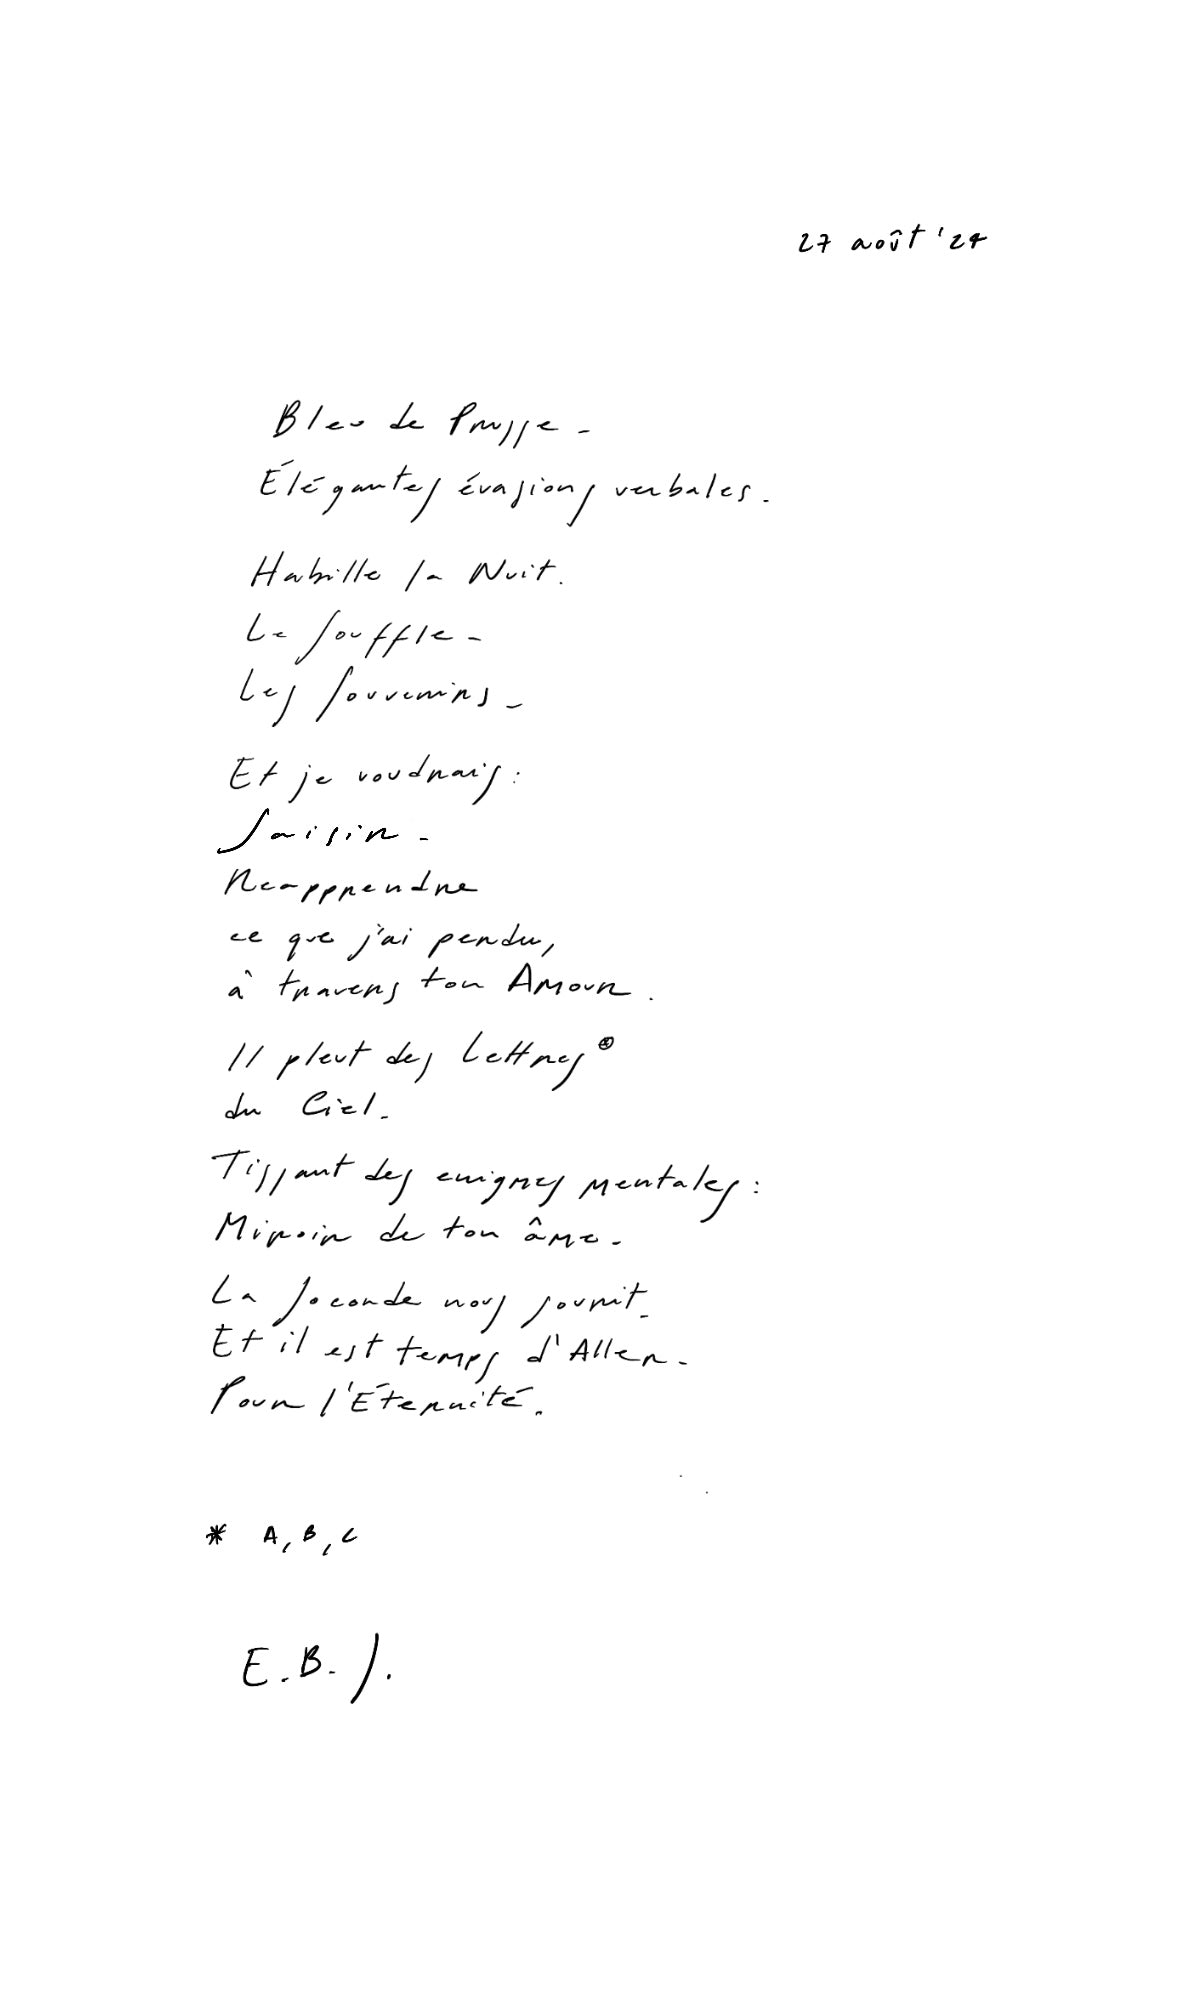 27 août '24
Bleu de Prusse -
Élégantes évasions verbales.
Habille la Nuit.
Le Souffle -
Les Souvenirs -
Et je voudrais :
Saisir -
Reapprendre
ce que j'ai perdu,
à travers ton Amour.
Il pleut des Lettres*
du Ciel.
Tissant des enigmes mentales :
Miroir de ton âme.
La Joconde nous sourit.
Et il est temps d'Aller -
Pour l'Éternité.
* A, B, C
E.B.J.